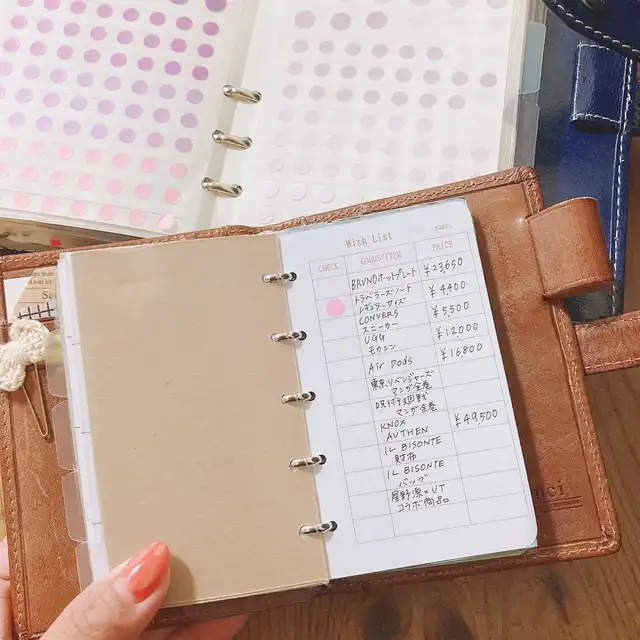 Wish List
CHECK GOODS/ITEM PRICE
BRUNOホットプレート ¥23,650
トラベラーズノート
レギュラーサイズ ¥4,400
CONVERS
スニーカー ¥5,500
UGG
モカシン ¥12,000
Air pods ¥16,800
東京リベンジャーズ
マンガ全巻
呪術廻戦
マンガ全巻
KNOX
AUTHEN ¥49,500
IL BISONTE
財布
IL BISONTE
バッグ
星野源×UT
コラボ商品